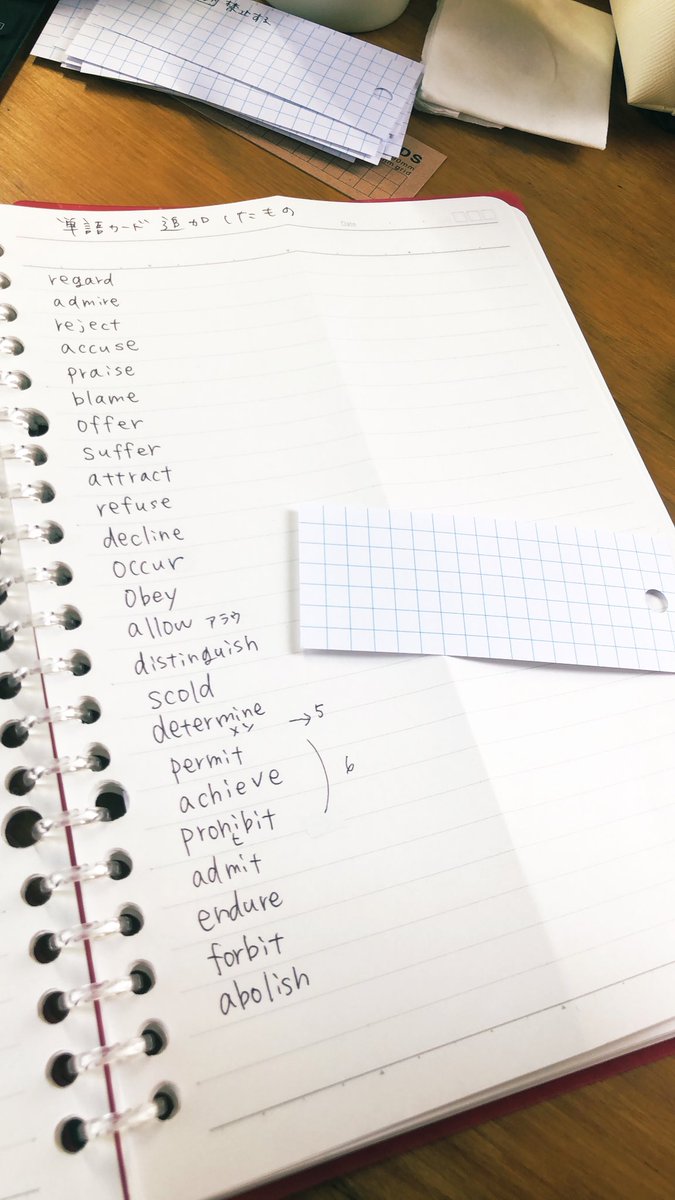 禁止する
DS
mm
grid
単語カード 追加したもの
Date
regard
admire
reject
accuse
praise
blame
offer
suffer
attract
refuse
decline
occur
obey
allow アラウ
distinguish
scold
determine →5
メン
permit
achieve 6
prohibit
ヒ
admit
endure
forbit
abolish